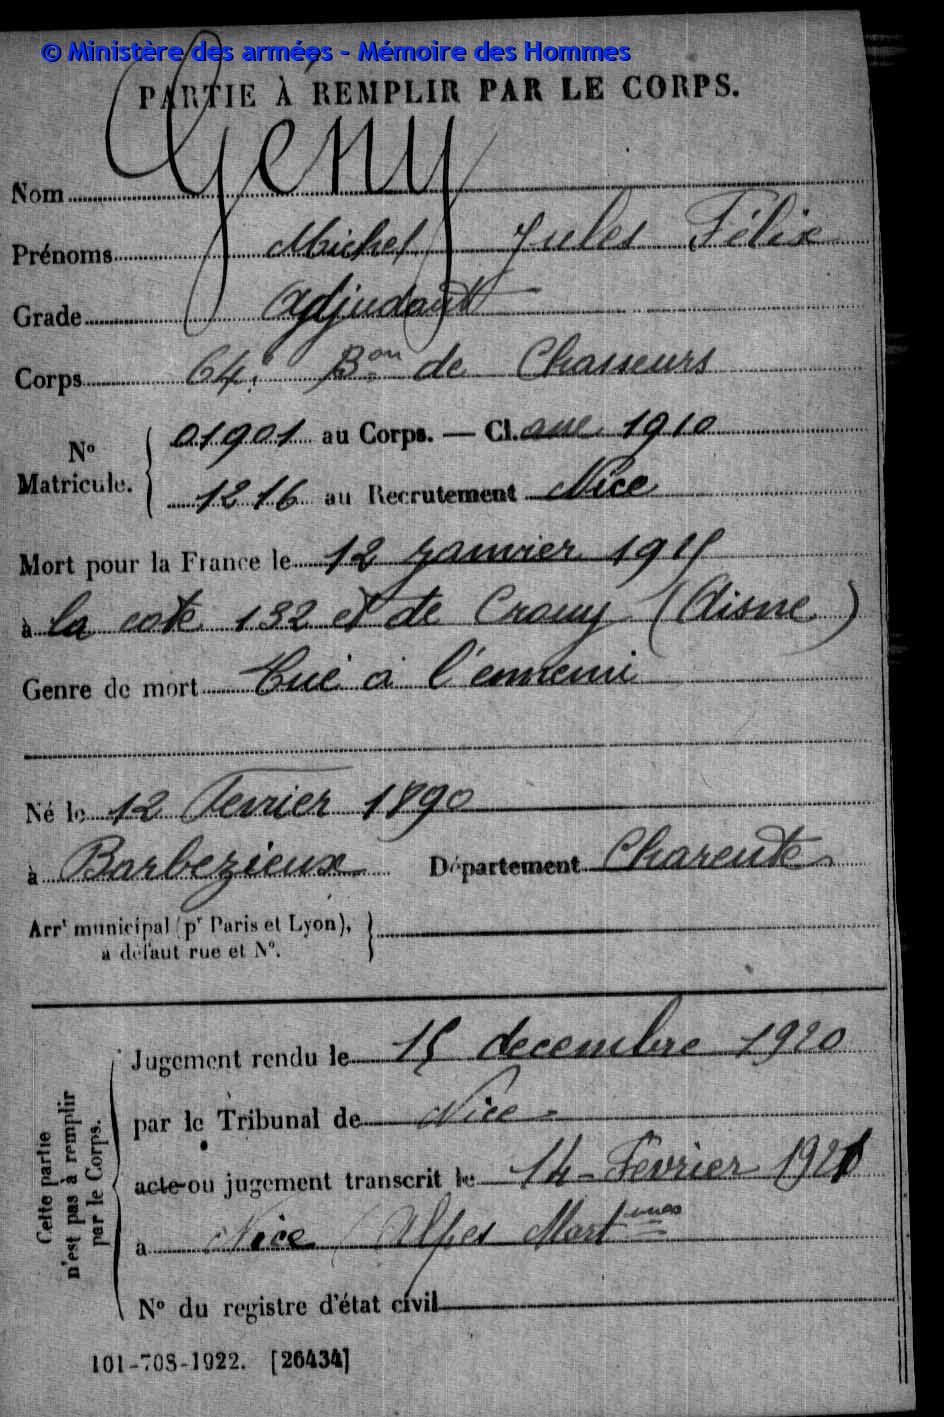 © Ministère des armées - Mémoire des Hommes
PARTIE À REMPLIR PAR LE CORPS.
Nom Geny
Prénoms Michel Jules Félix
Grade Adjudant
Corps 64e Bon de Chasseurs
No Matricule. { 01901 au Corps. — Cl. asse 1910
1216 au Recrutement Nice
Mort pour la France le 12 Janvier 1915
à la cote 132 et de Crouy (Aisne)
Genre de mort Tué à l'ennemi
Né le 12 Fevrier 1890
à Barbezieux Département Charente
Arrt municipal (pr Paris et Lyon),
à défaut rue et No.
Cette partie n'est pas à remplir par le Corps.
Jugement rendu le 15 decembre 1920
par le Tribunal de Nice
acte ou jugement transcrit le 14 - Fevrier 1921
à Nice (Alpes Martimes
No du registre d'état civil
101-708-1922. [26434]